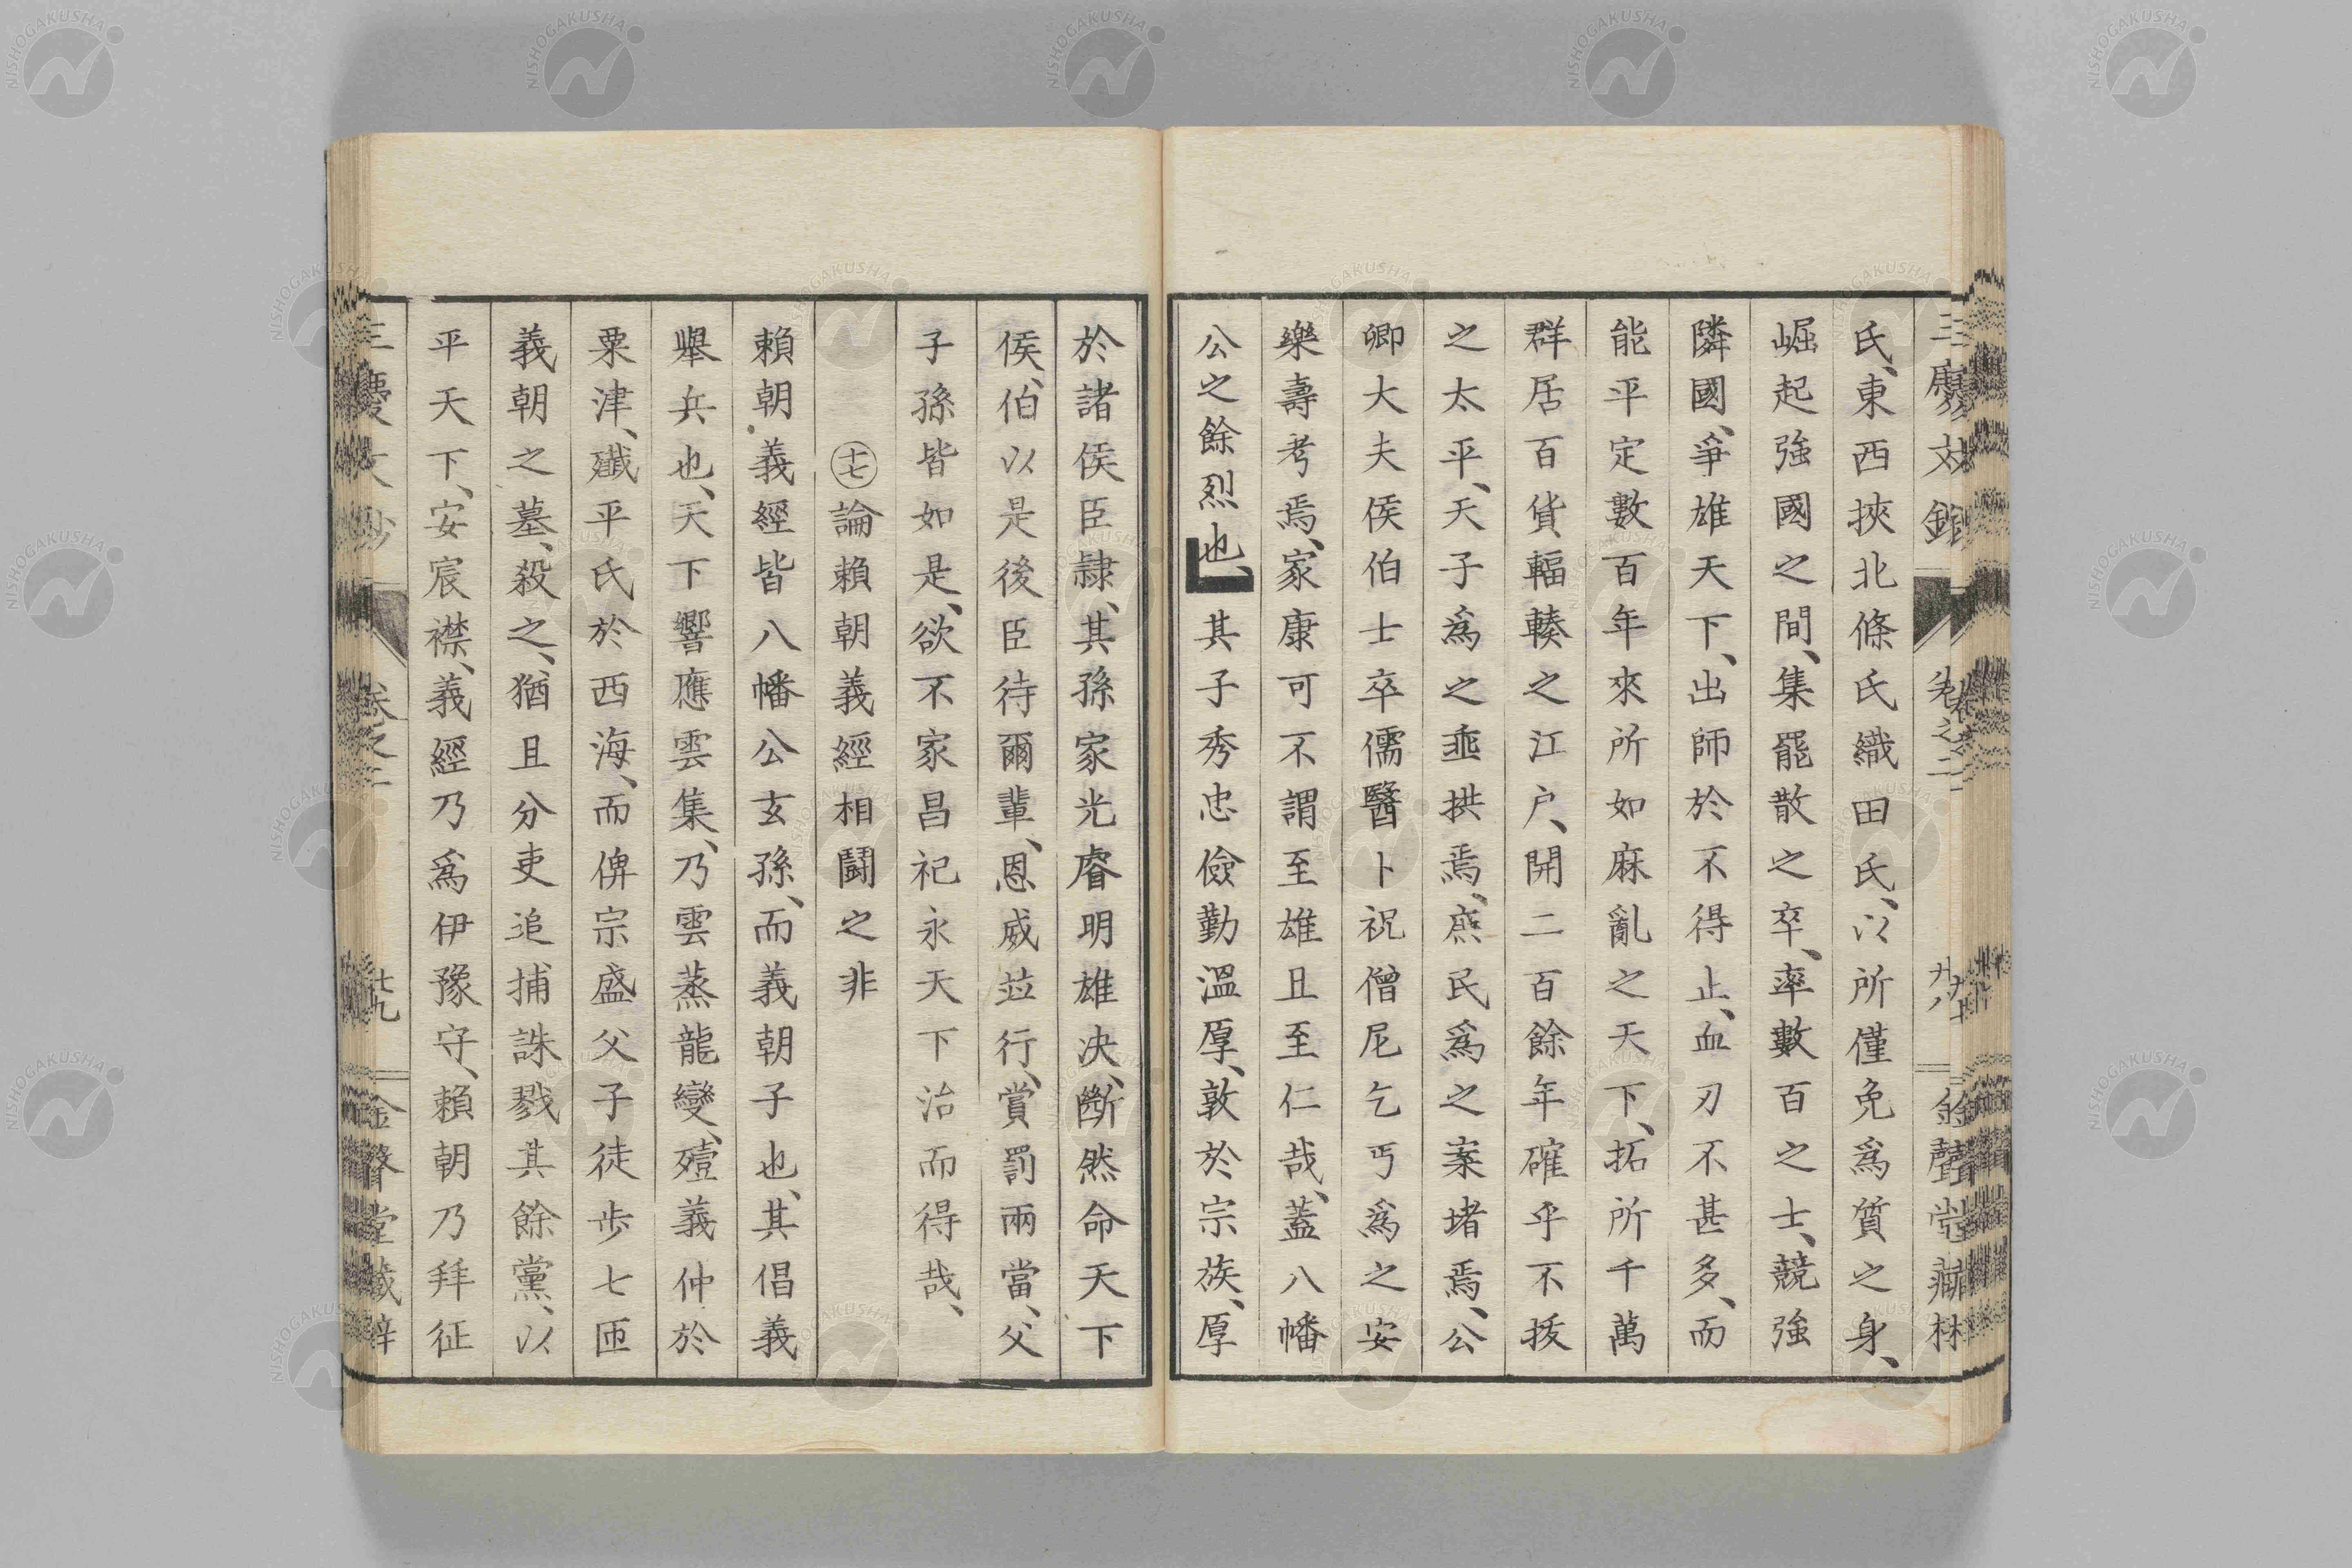 氏、東西挾北條氏織田氏、以所僅免爲質之身、
崛起強國之間、集罷散之卒、率數百之士、競強
隣國、爭雄天下、出師於不得止、血刃不甚多、而
能平定數百年來所如麻亂之天下、拓所千萬
群居百貨輻輳之江戸、開二百餘年確乎不拔
之太平、天子爲之垂拱焉、烝民爲之案堵焉、公
卿大夫侯伯士卒儒醫卜祝僧尼乞丐爲之安
樂壽考焉、家康可不謂至雄且至仁哉、蓋八幡
公之餘烈也、其子秀忠儉勤溫厚、敦於宗族、厚
於諸侯臣隷、其孫家光睿明雄決、斷然命天下
侯、伯以是後臣待爾輩、恩威竝行、賞罰兩當、父
子孫皆如是、欲不家昌祀永天下治而得哉、
㊉七論賴朝義經相鬪之非
賴朝義經皆八幡公玄孫、而義朝子也、其倡義
擧兵也、天下響應雲集、乃雲蒸龍變、殪義仲於
粟津、殲平氏於西海、而俾宗盛父子徒步七匝
義朝之墓、殺之、猶且分吏追捕誅戮其餘黨、以
平天下、安宸襟、義經乃爲伊豫守、賴朝乃拜征
卷之二
廿九
NISHOGAKUSHA